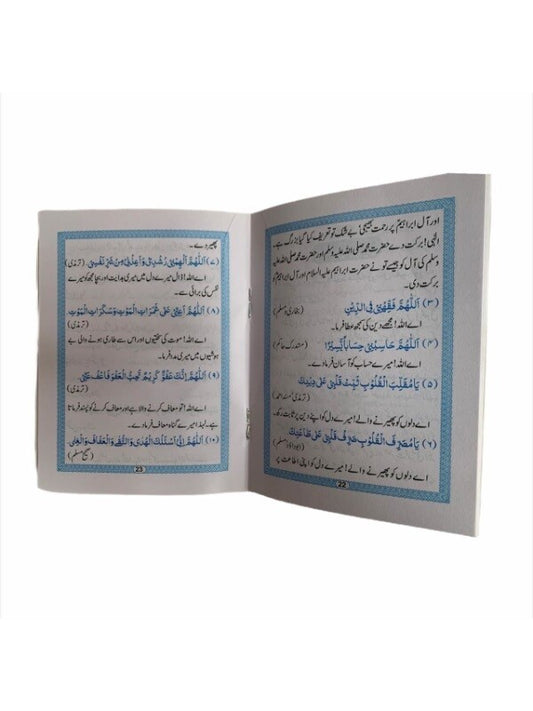 اور آل ابراہیمؑ پر رحمت بھیجی بے شک تو تعریف کیا گیا بزرگ ہے۔
الٰہی! برکت دے حضرت محمد صلی اللہ علیہ وسلم اور حضرت محمد صلی اللہ علیہ
وسلم کی آل کو جیسے تو نے حضرت ابراہیم علیہ السلام اور آل ابراہیمؑ کو
برکت دی۔
(۳) اَللّٰهُمَّ فَقِّهْنِيْ فِي الدِّيْنِ (بخاری و مسلم)
اے اللہ! مجھے دین کی سمجھ عطا فرما۔
(۴) اَللّٰهُمَّ حَاسِبْنِيْ حِسَابًا يَّسِيْرًا (مستدرک حاکم)
اے اللہ! میرے حساب کو آسان فرما دے۔
(۵) يَا مُقَلِّبَ الْقُلُوْبِ ثَبِّتْ قَلْبِيْ عَلٰى دِيْنِكَ
(ترمذی، مسند احمد)
اے دلوں کو پھیرنے والے! میرے دل کو اپنے دین پر ثابت رکھ۔
(۶) يَا مُصَرِّفَ الْقُلُوْبِ صَرِّفْ قَلْبِيْ عَلٰى طَاعَتِكَ
اے دلوں کو پھیرنے والے! میرے دل کو اپنی اطاعت پر
22
پھیر دے۔
(۷) اَللّٰهُمَّ اَلْهِمْنِيْ رُشْدِيْ وَاَعِذْنِيْ مِنْ شَرِّ نَفْسِيْ۔ (ترمذی)
اے اللہ! ڈال میرے دل میں میری ہدایت اور بچا مجھ کو میرے
نفس کی برائی سے۔
(۸) اَللّٰهُمَّ اَعِنِّيْ عَلٰى غَمَرَاتِ الْمَوْتِ وَسَكَرَاتِ الْمَوْتِ
(ترمذی)
اے اللہ! موت کی سختیوں اور اس سے طاری ہونے والی بے
ہوشیوں میں میری مدد فرما۔
(۹) اَللّٰهُمَّ اِنَّكَ عَفُوٌّ كَرِيْمٌ تُحِبُّ الْعَفْوَ فَاعْفُ عَنِّيْ
(ترمذی)
اے اللہ! تو معاف کرنے والا ہے اور معاف کرنے کو پسند فرماتا
ہے۔ لہٰذا میرے گناہ معاف فرما دے۔
(۱۰) اَللّٰهُمَّ اِنِّيْ اَسْئَلُكَ الْهُدٰى وَالتُّقٰى وَالْعَفَافَ وَالْغِنٰى
(صحیح مسلم)
23